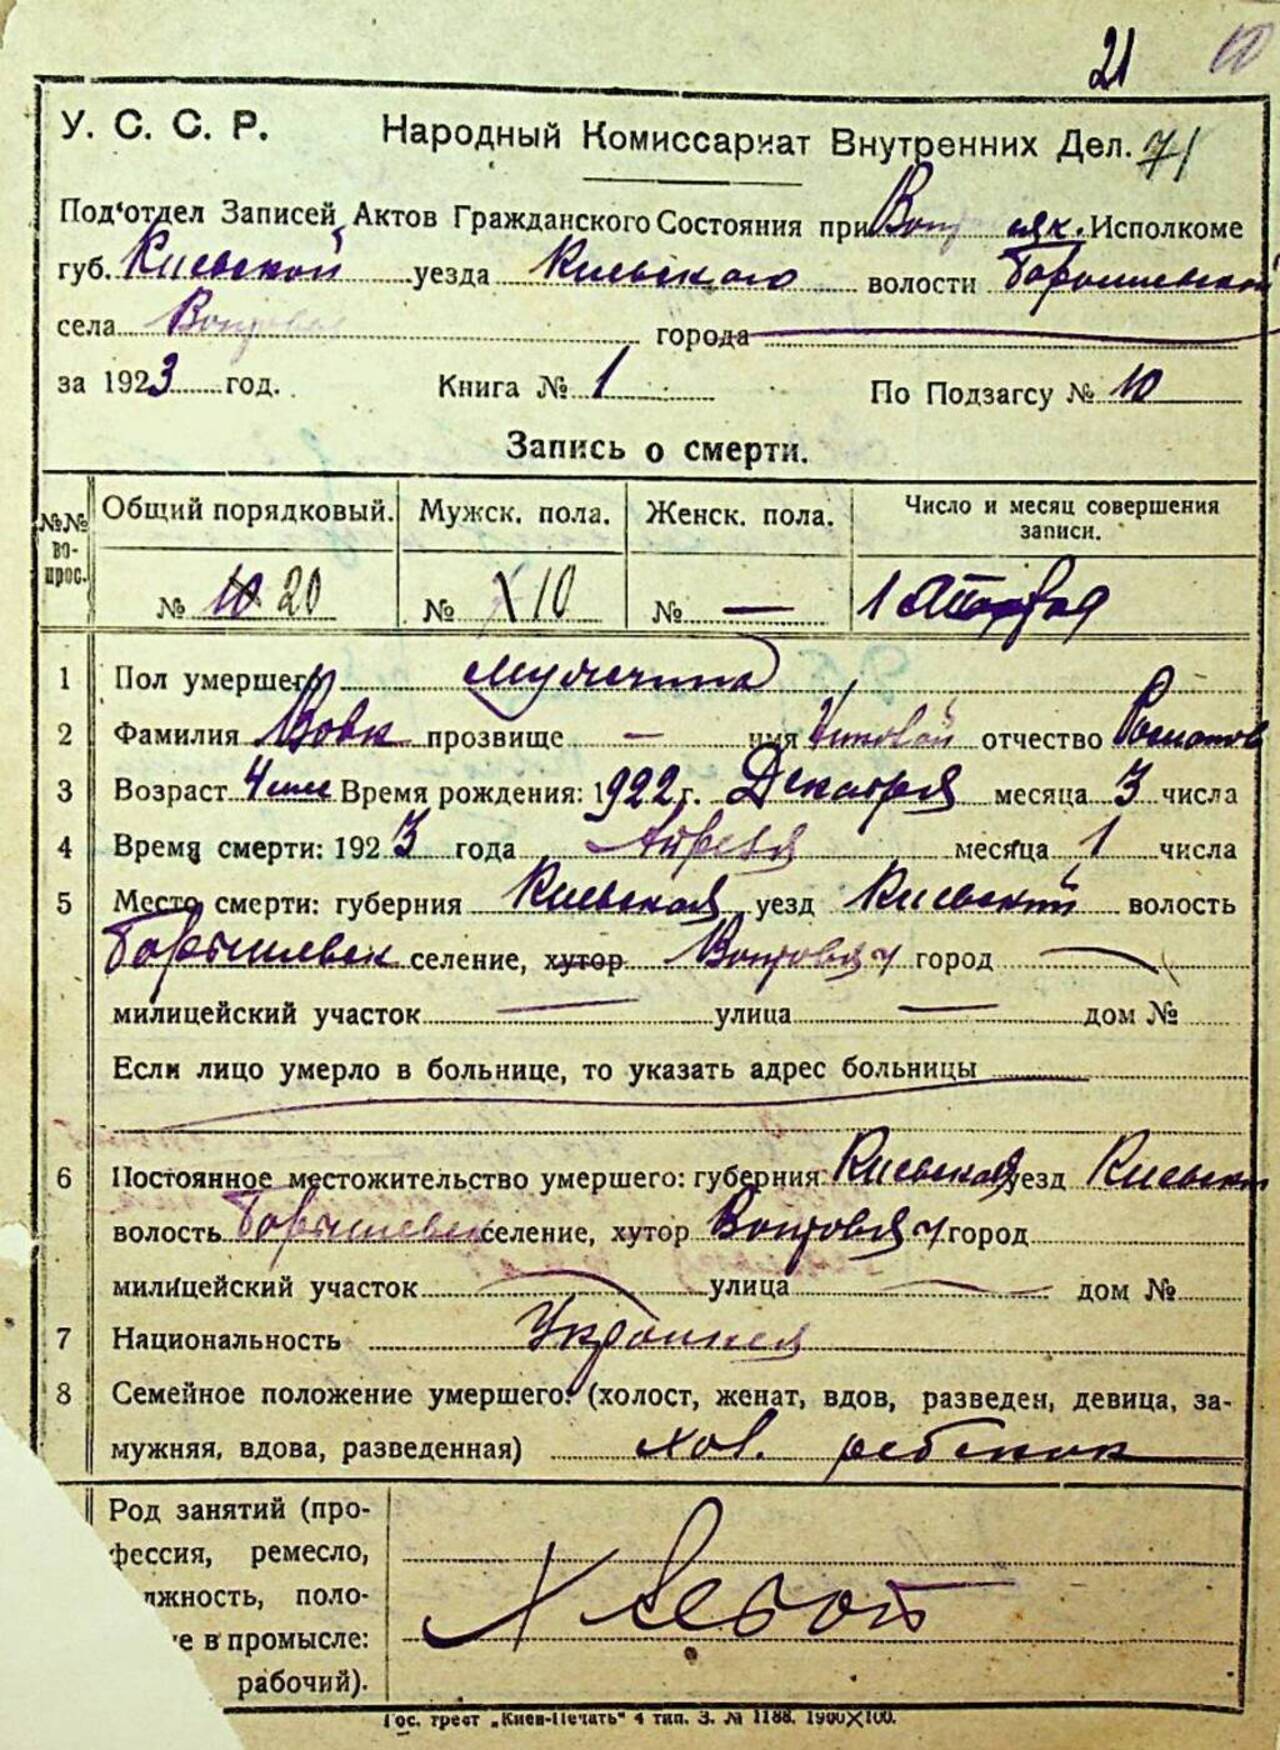 21 10
У. С. С. Р. Народный Комиссариат Внутренних Дел. 71
Под'отдел Записей Актов Гражданского Состояния при Исполкоме
губ. Киевской уезда Киевского волости Барышевской
села города
за 1923 год. Книга № 1 По Подзагсу № 10
Запись о смерти.
№№ вопрос. Общий порядковый. Мужск. пола. Женск. пола. Число и месяц совершения записи.
№ 10 20 № 10 № — 1 Апреля
1 Пол умершего мужчина
2 Фамилия Вовк прозвище — имя отчество Романов
3 Возраст 4 мес Время рождения: 1922 г. Декабря месяца 3 числа
4 Время смерти: 1923 года Апреля месяца 1 числа
5 Место смерти: губерния Киевская уезд Киевский волость
Барышевск селение, хутор город —
милицейский участок — улица — дом №
Если лицо умерло в больнице, то указать адрес больницы —
6 Постоянное местожительство умершего: губерния Киевская уезд Киевский
волость Барышевск селение, хутор город
милицейский участок — улица — дом №
7 Национальность
8 Семейное положение умершего: (холост, женат, вдов, разведен, девица, за-
мужняя, вдова, разведенная) хол. ребенок
Род занятий (про-
фессия, ремесло,
лжность, поло-
е в промысле:
рабочий).
Гос. трест „Киев-Печать" 4 тип. З. № 1188. 1900X100.